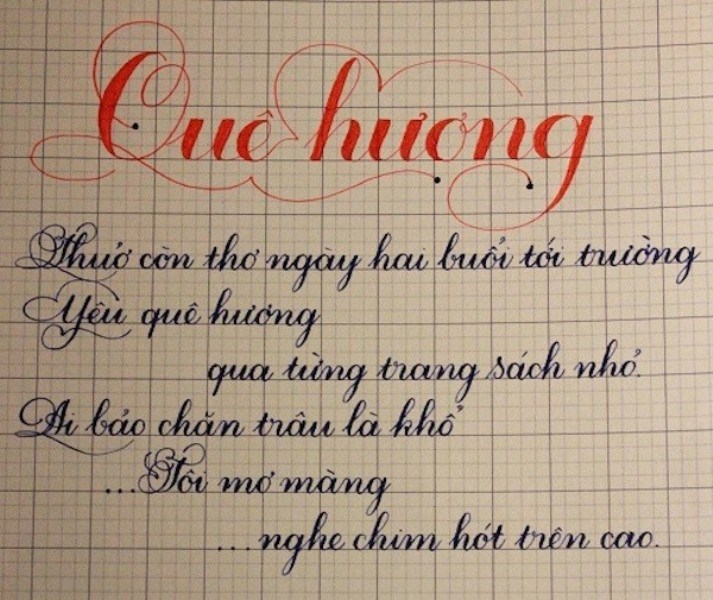 Quê hương
Thuở còn thơ ngày hai buổi tới trường
Yêu quê hương
qua từng trang sách nhỏ.
Ai bảo chăn trâu là khổ
...Tôi mơ màng
...nghe chim hót trên cao.